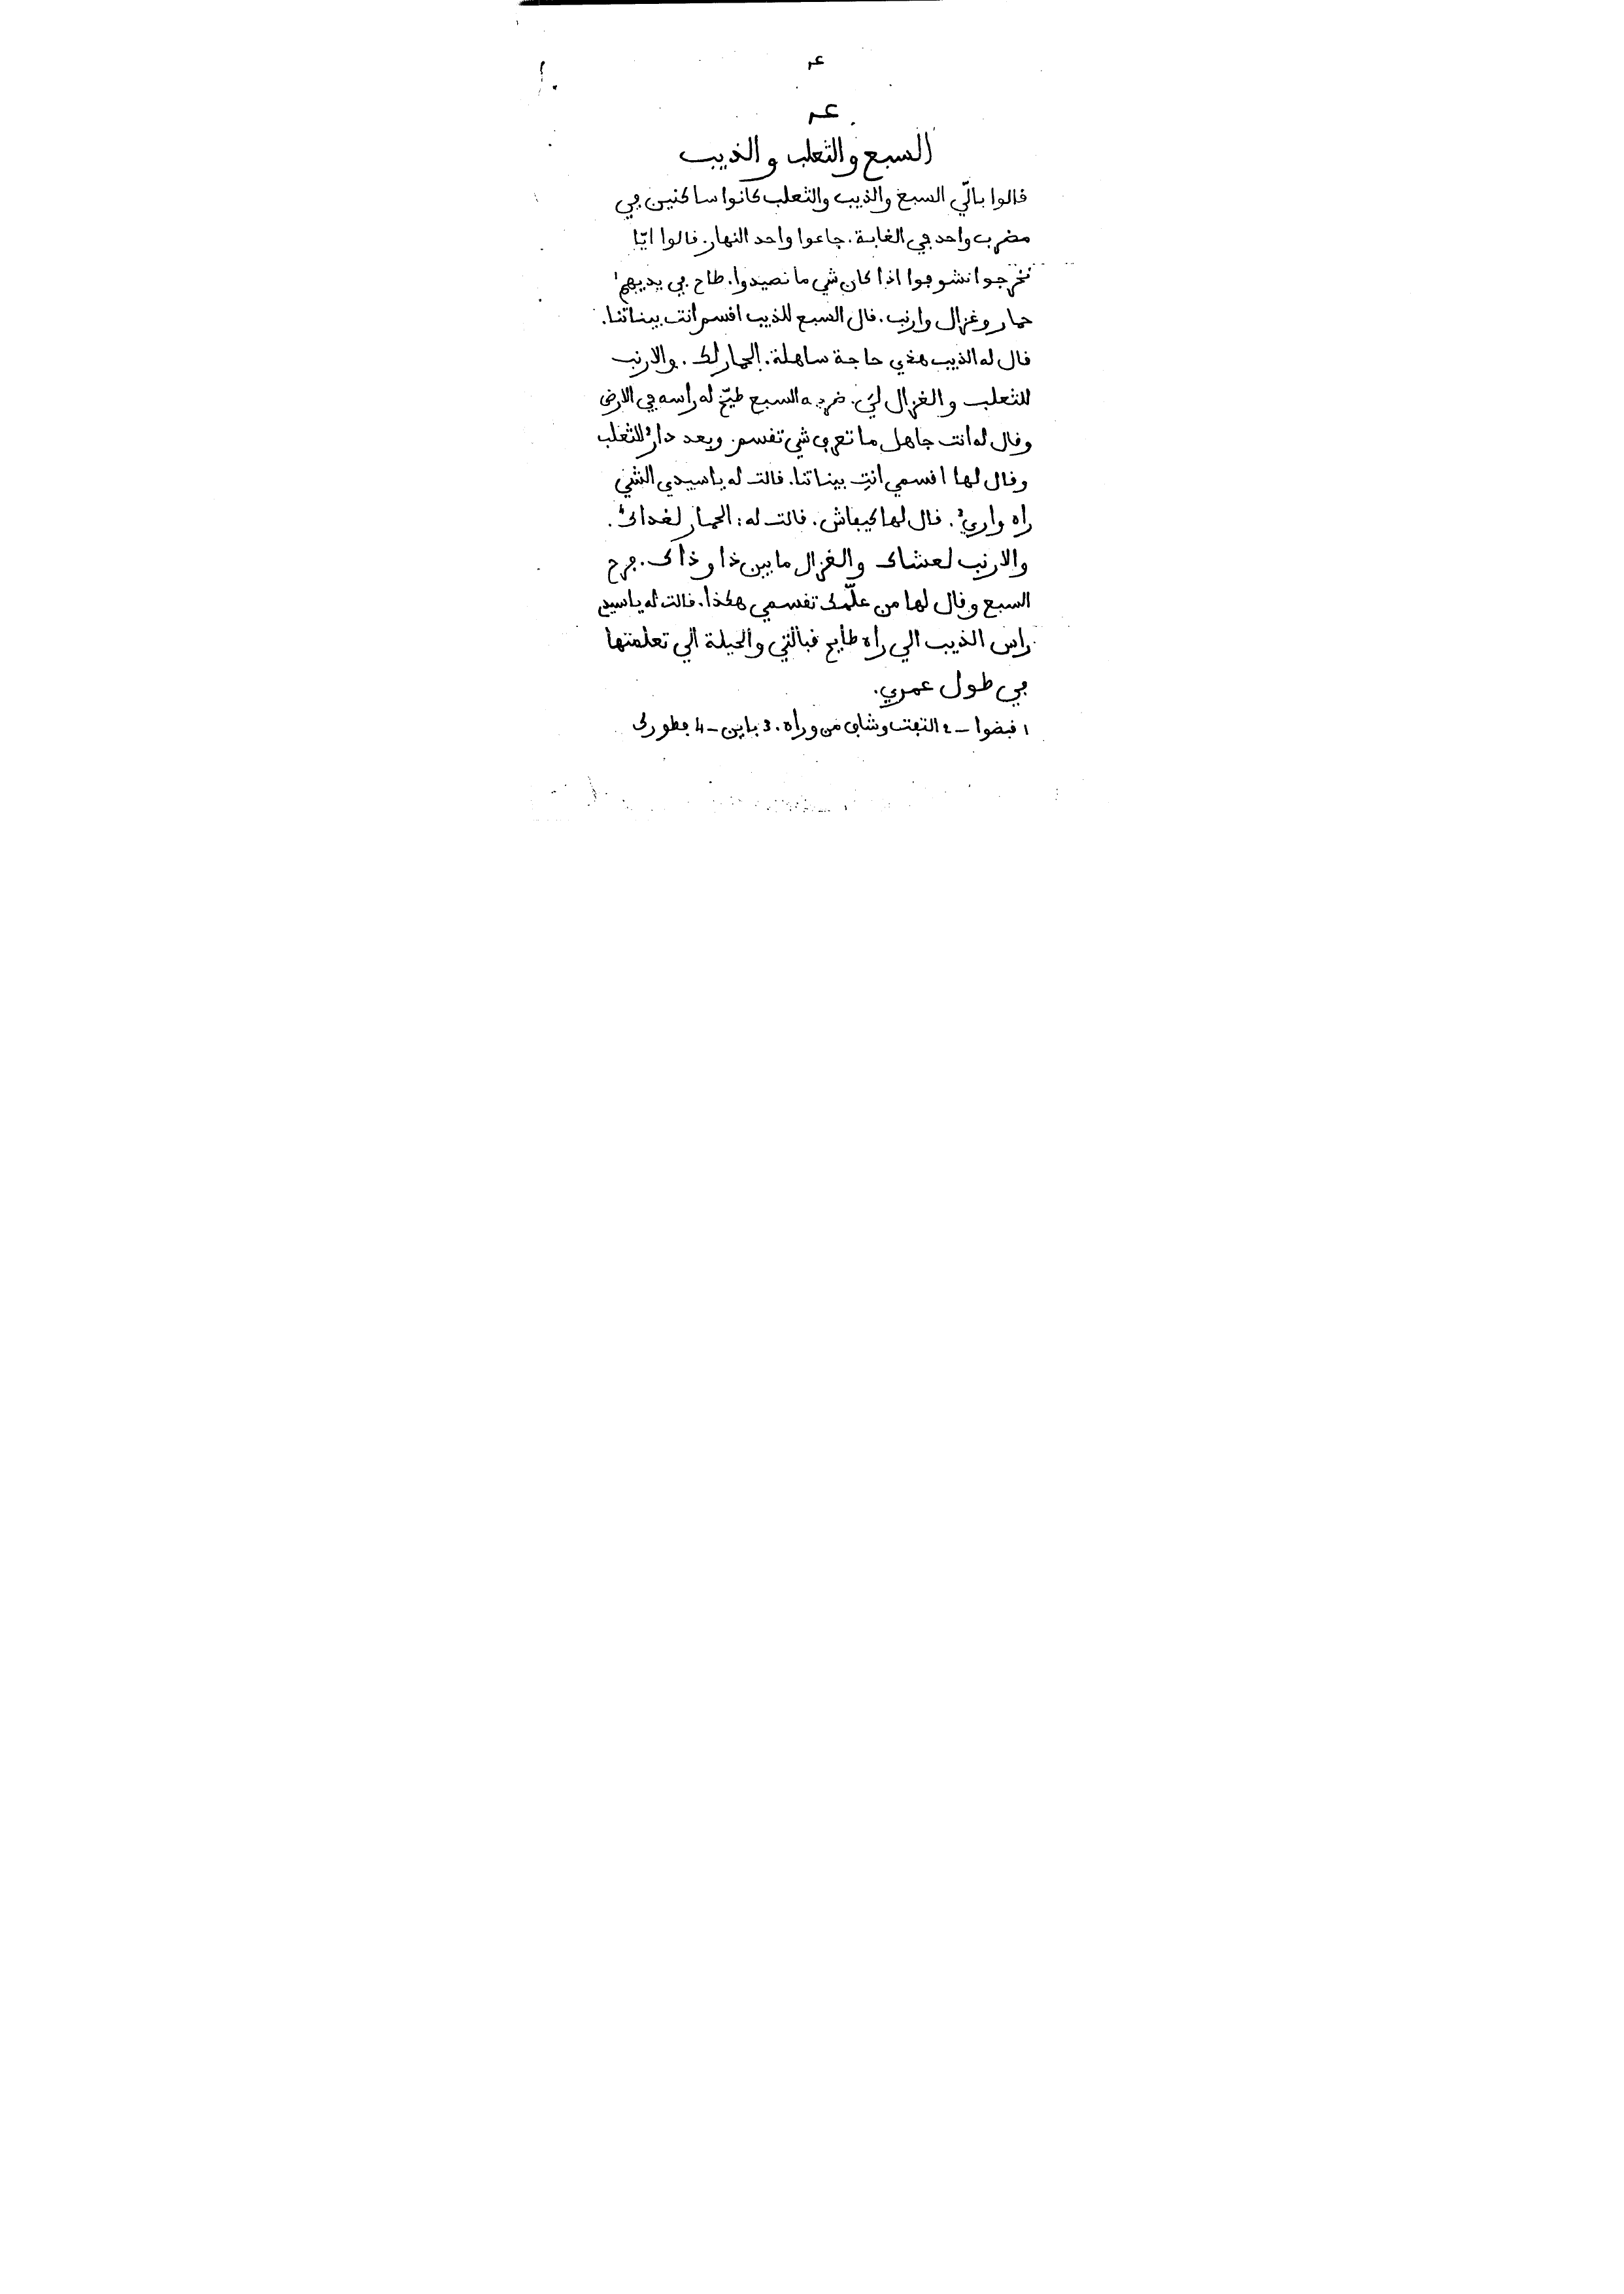 عر
عر
السبع والثعلب والذيب
قالوا بالّي السبع والذيب والثعلب كانوا ساكنين في
مضرب واحد في الغابة. جاعوا واحد النهار. قالوا ايّا
نخرجوا نشوفوا اذا كان شي ما نصيدوا. طاح في يديهم1
حمار وغزال وارنب. قال السبع للذيب اقسم انت بيناتنا.
قال له الذيب هذي حاجة ساهلة. الحمار لك. والارنب
للثعلب والغزال ليَ. ضربه السبع طيّح له راسه في الارض
وقال له انت جاهل ما تعرف شي تقسم. وبعد دار2 للثعلب
وقال لها اقسمي انتِ بيناتنا. قالت له يا سيدي الشي
راه واري3. قال لها كيفاش. قالت له: الحمار لغداك4.
والارنب لعشاك والغزال ما بين ذا وذاك. فرح
السبع وقال لها من علّمك تقسمي هكذا. قالت له يا سيدي
راس الذيب الي راه طايح قبالتي والحيلة الي تعلمتها
في طول عمري.
1 قبضوا – 2 التفت وشاف من وراه. 3 باين – 4 فطورك